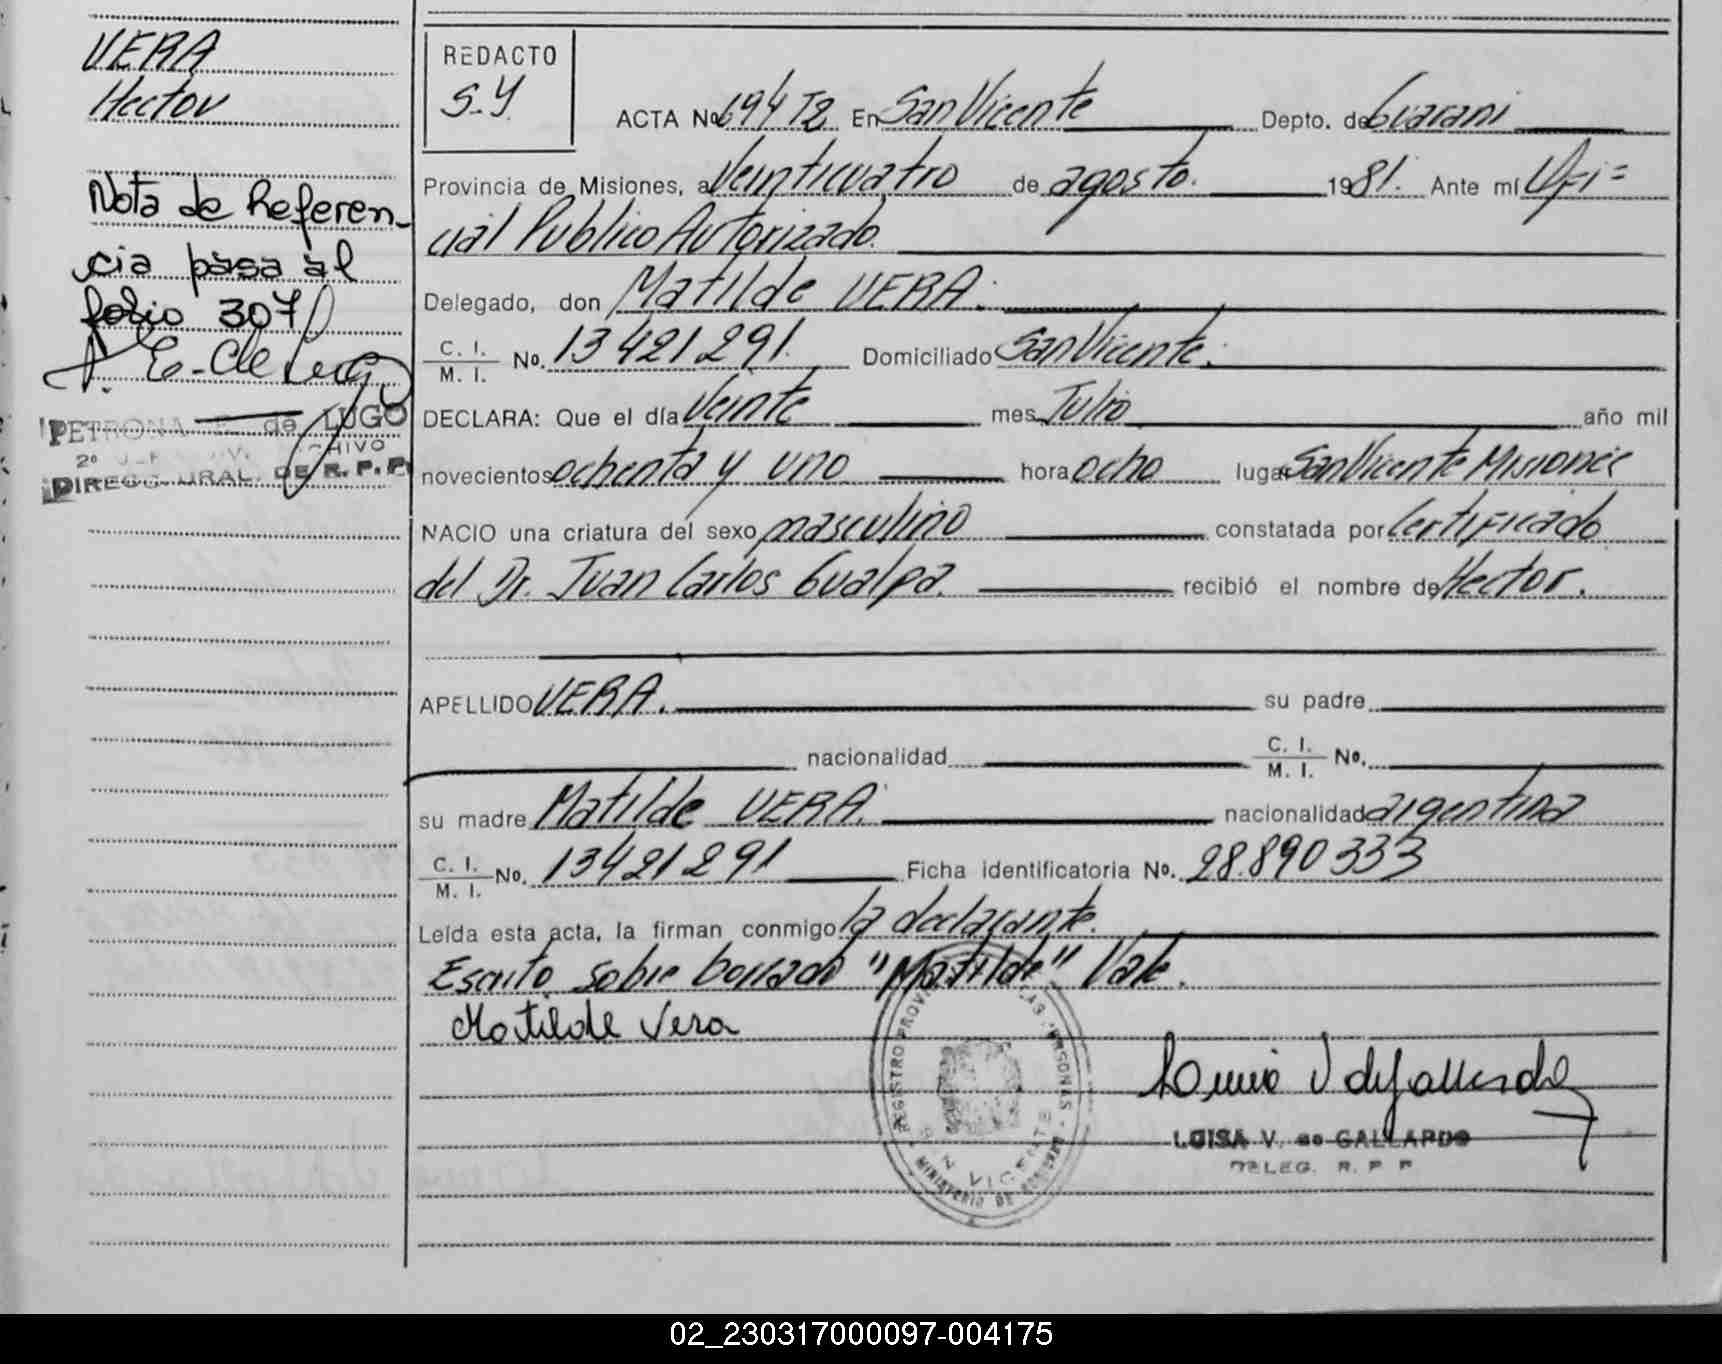 VERA
Hector
Nota de Referen-
cia pasa al
folio 307
PETRONA E. de LUGO
DIREC. GRAL. DE R. P. P.
REDACTO
S.Y.
ACTA No. 694 T2 En San Vicente Depto. de Guarani
Provincia de Misiones, a Veinticuatro de agosto. 1981. Ante mí Ofi=
cial Publico Autorizado.
Delegado, don Matilde VERA.
C. I.
M. I. No. 13421291. Domiciliado San Vicente.
DECLARA: Que el día Veinte mes Julio año mil
novecientos ochenta y uno hora ocho lugar San Vicente Misiones
NACIO una criatura del sexo masculino constatada por Certificado
del Dr. Juan Carlos Gualpa. recibió el nombre de Hector.
APELLIDO VERA. su padre
nacionalidad C. I.
M. I. No.
su madre Matilde VERA. nacionalidad argentina
C. I.
M. I. No. 13421291 Ficha identificatoria No. 28.890333
Leída esta acta, la firman conmigo la declarante.
Escrito sobre borrado "Matilde" Vale.
Matilde Vera
REGISTRO PROVINCIAL DE LAS PERSONAS
SAN VICENTE
MINISTERIO DE GOBIERNO
LUISA V. de GALLARDO
DELEG. R. P. P.
02_230317000097-004175